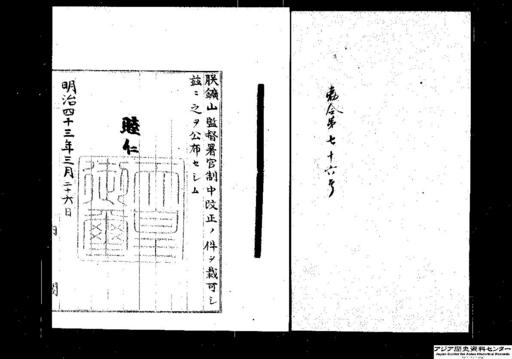 勅令第七十六号
朕鑛山監督署官制中改正ノ件ヲ裁可シ
茲ニ之ヲ公布セシム
睦仁
天皇御璽
明治四十三年三月二十六日
アジア歴史資料センター
Japan Center for Asian Historical Records